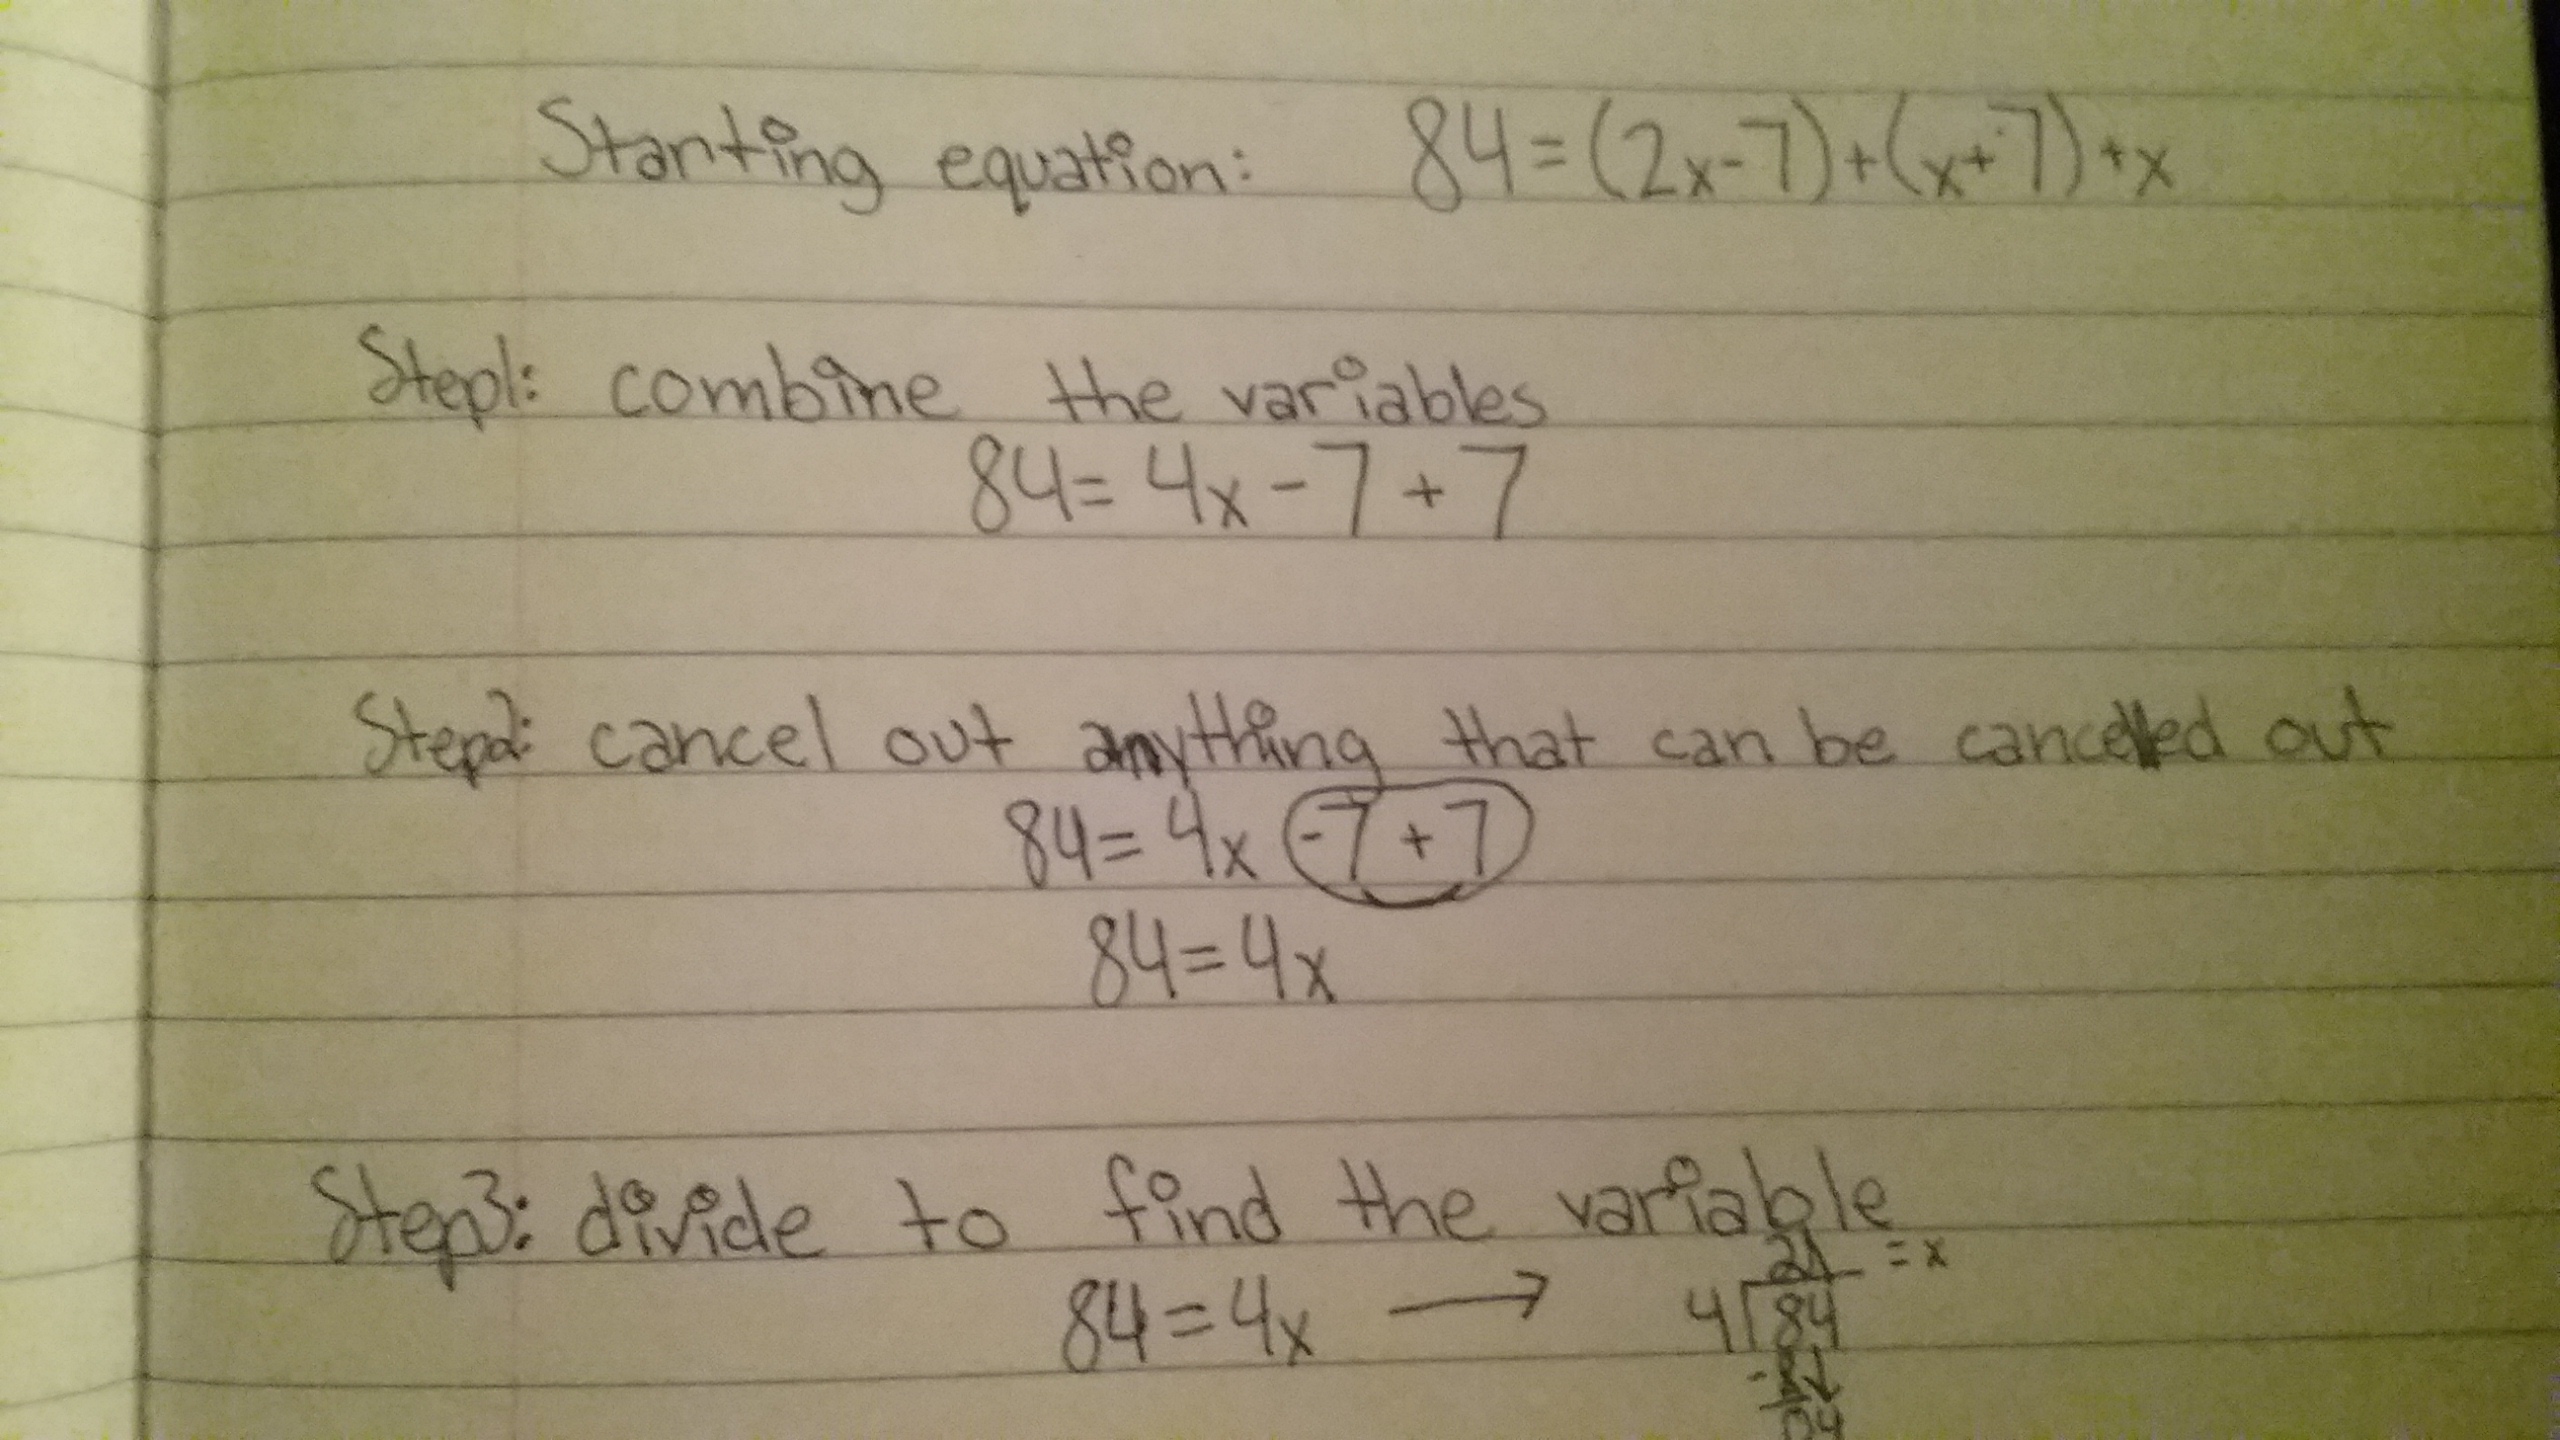 Starting equation: 84=(2x-7)+(x+7)+x
Step1: combine the variables
84=4x-7+7
Step2: cancel out anything that can be cancelled out
84=4x-7+7
84=4x
Step3: divide to find the variable
21 =x
84=4x → 4 84
04